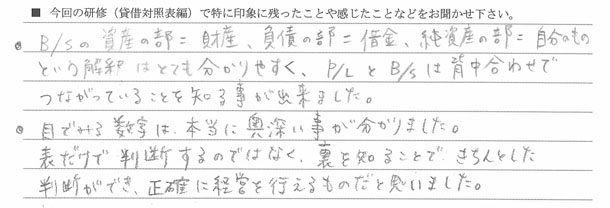 ■ 今回の研修（貸借対照表編）で特に印象に残ったことや感じたことなどをお聞かせ下さい。
● B/Sの資産の部＝財産、負債の部＝借金、純資産の部＝自分のもの
という解釈はとても分かりやすく、P/LとB/Sは背中合わせで
つながっていることを知る事が出来ました。
● 目でみる数字は、本当に奥深い事が分かりました。
表だけで判断するのではなく、裏を知ることできちんとした
判断ができ、正確に経営を行えるものだと思いました。